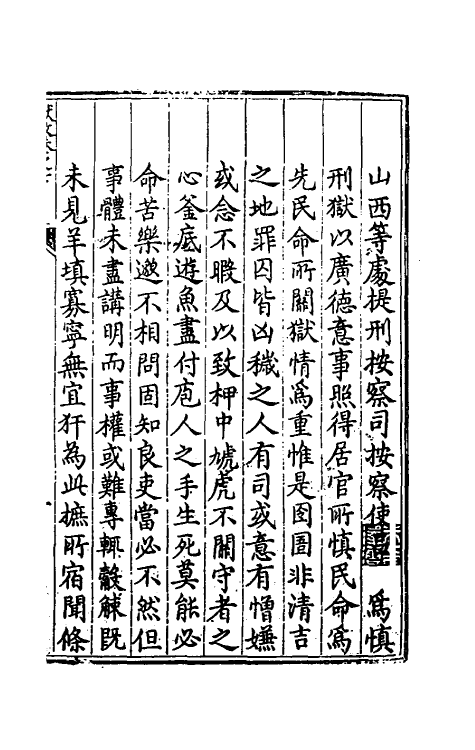 山西等處提刑按察司按察使 為慎
刑獄以廣德意事照得居官所慎民命為
先民命所關獄情為重惟是囹圄非清吉
之地罪囚皆凶穢之人有司或意有憎嫌
或念不暇及以致柙中虓虎不關守者之
心釜底遊魚盡付庖人之手生死莫能必
命苦樂邈不相問固知良吏當必不然但
事體未盡講明而事權或難專輒觳觫既
未見羊填寡寧無宜犴為此摭所宿聞條